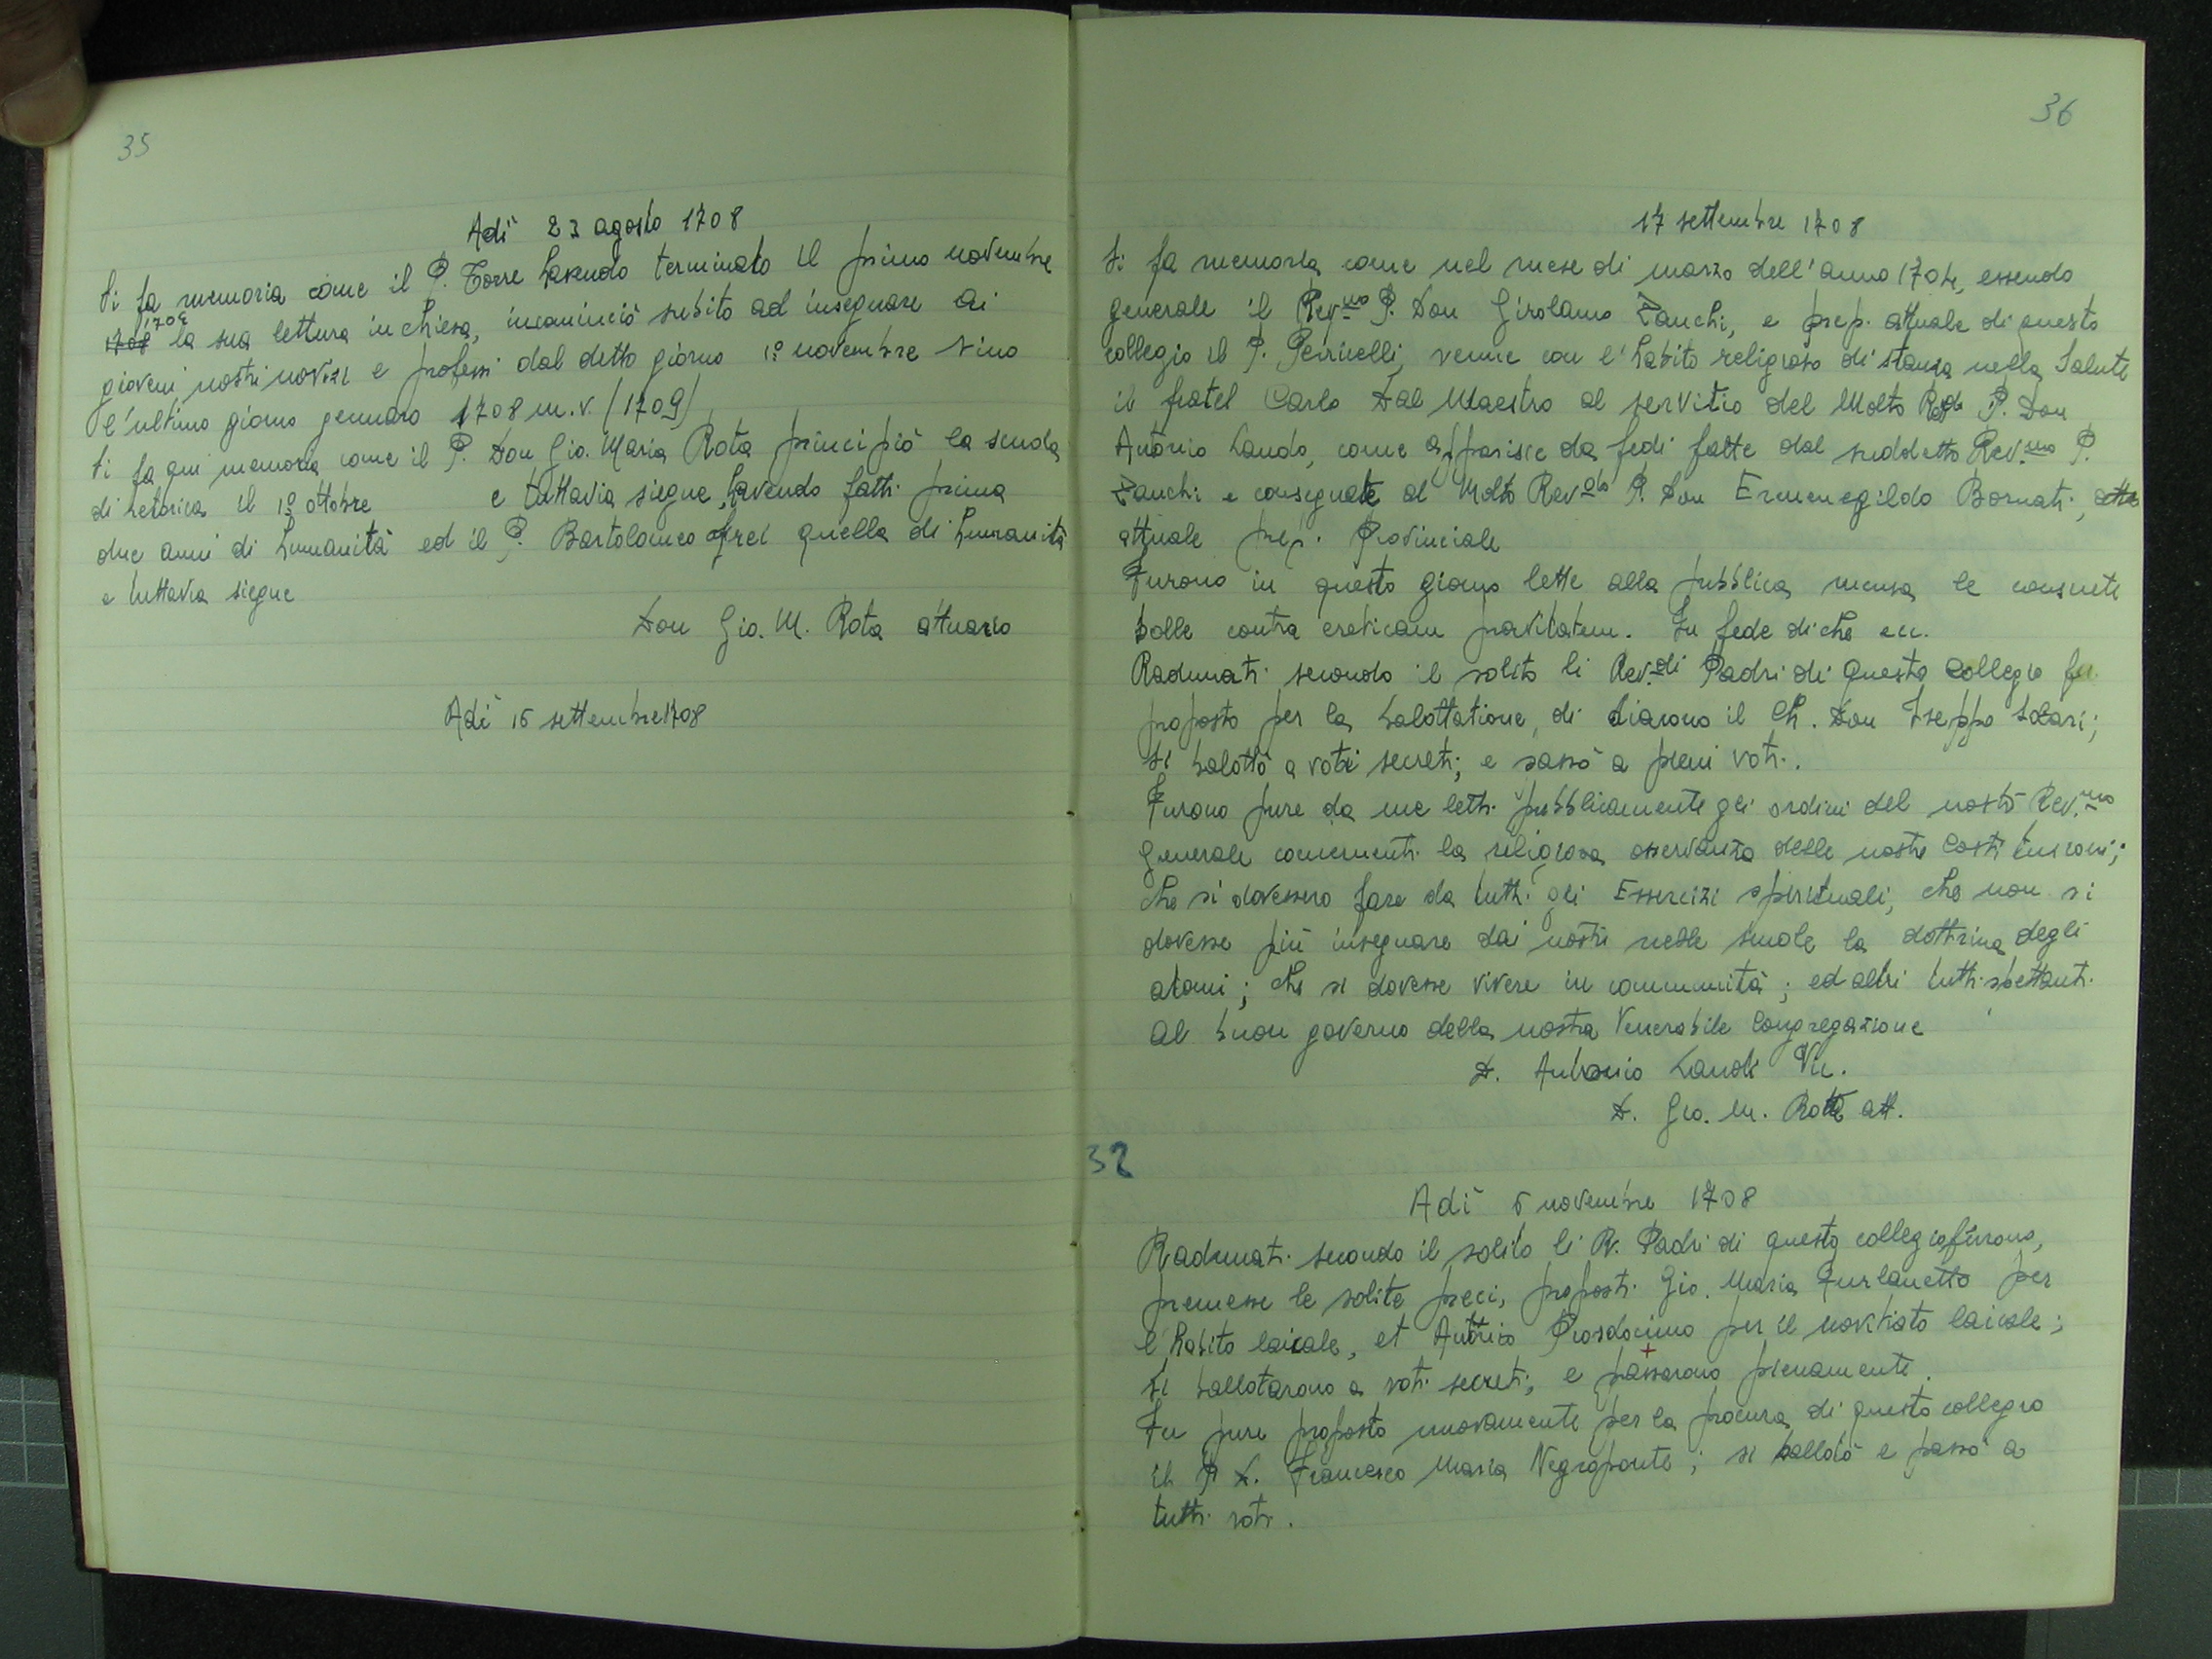 35
Adì 23 agosto 1708
Si fa memoria come il P. Torre havendo terminato il primo novembre
1708 la sua lettura in chiesa, incominciò subito ad insegnare ai
gioveni nostri novizi e professi dal detto giorno 1º novembre sino
l'ultimo giorno gennaro 1708 m.v. (1709)
Si fa qui memoria come il P. Don Gio. Maria Rota principiò la scuola
di retorica il 1º ottobre e tuttavia siegue, havendo fatti prima
due anni di humanità ed il P. Bartolomeo quella di humanità
e tuttavia siegue
Don Gio. M. Rota attuario
Adì 16 settembre 1708
36
17 settembre 1708
Si fa memoria come nel mese di marzo dell'anno 1704, essendo
generale il Rev.mo P. Don Girolamo Zanchi, e prep. attuale di questo
collegio il P. Petricelli, venne con l'habito religioso di stanza nella Salute
il fratel Carlo Dal Maestro al servitio del Molto Rev.do P. Don
Antonio Lando, come apparisce da fedi fatte dal suddetto Rev.mo P.
Zanchi e consegnate al Molto Rev.do P. Don Ermenegildo Bornati,
attuale prep. Provinciale
Furono in questo giorno lette alla pubblica mensa le consuete
bolle contra ereticam pravitatem. In fede di che ecc.
Radunati secondo il solito li Rev.di Padri di questo collegio fu
proposto per la ballottatione, di diacono il Ch. Don Iseppo Solari;
si balottò a voti secreti; e passò a pieni voti.
Furono pure da me letti pubblicamente gli ordini del nostro Rev.mo
Generale concernenti la religiosa osservanza delle nostre costituzioni;
che si dovessero fare da tutti gli Essercizi spirituali, che non si
dovesse più insegnare dai nostri nelle scuole la dottrina degli
atomi; che si dovesse vivere in communità; ed altri tutti spettanti
al buon governo della nostra Venerabile Congregazione
D. Antonio Landi Vic.
D. Gio. M. Rotta att.
32
Adì 6 novembre 1708
Radunati secondo il solito li R. Padri di questo collegio furono,
premesse le solite preci, proposti Gio. Maria Furlanetto per
l'habito laicale, et Antonio Prosdocimo per il novitiato laicale;
si ballotarono a voti secreti; e passarono pienamente.
Fu pure proposto nuovamente per la procura di questo collegio
il P. D. Francesco Maria Negroponte; si ballotò e passò a
tutti voti.